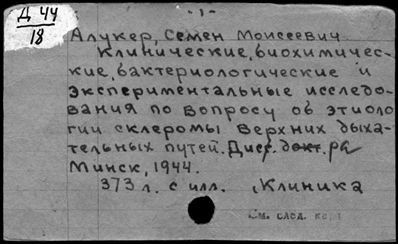 Д 44
18
- 1 -
Алукер, Семен Моисеевич
Клинические, биохимичес-
кие, бактериологические и
экспериментальные исследо-
вания по вопросу об этиоло-
гии склеромы верхних дыха-
тельных путей. Дисс. докт. ра
Минск, 1944.
373 л. с илл. , Клиника
См. след.